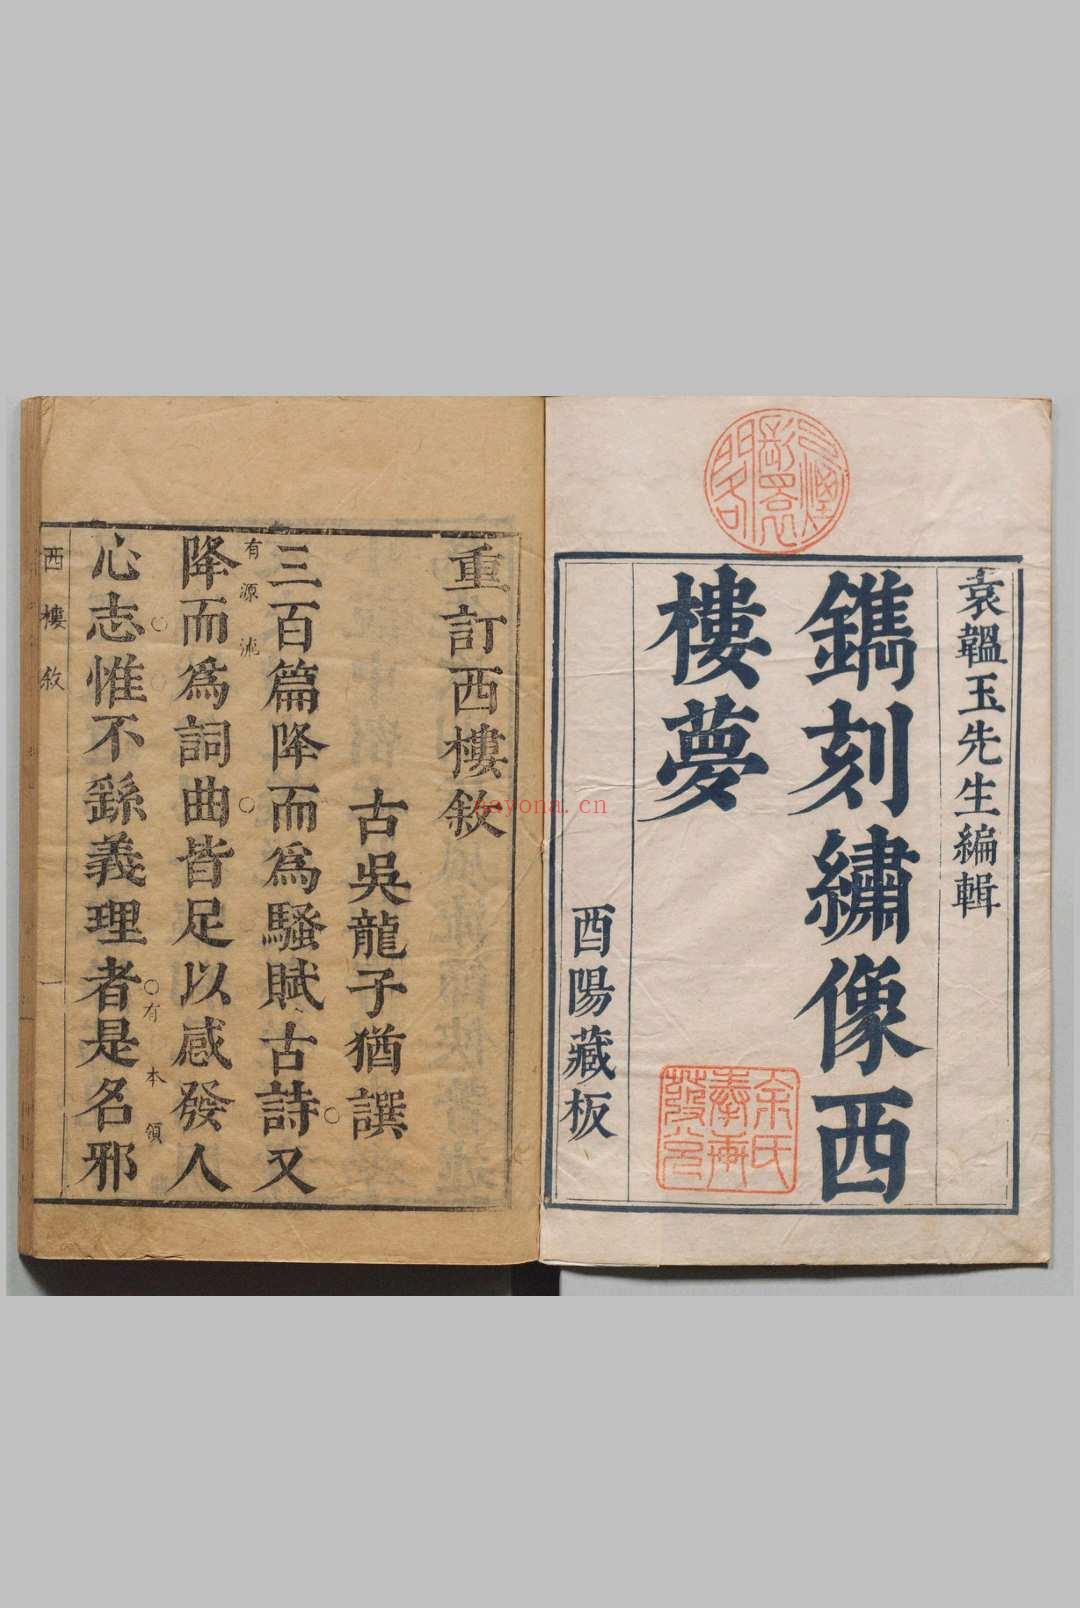 袁韞玉先生編輯
鐫刻繡像西
樓夢
酉陽藏板
重訂西樓敘
古吳龍子猶譔
三百篇降而為騷賦古詩又
有源流
降而為詞曲皆足以感發人
有本領
心志惟不繇義理者是名邪
西樓敘 一
nayona.cn